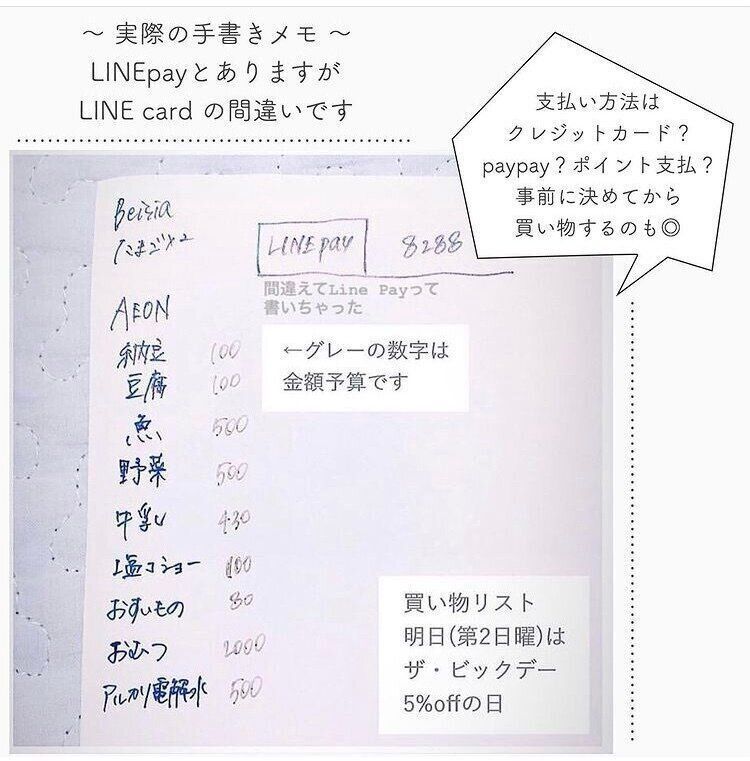 ～ 実際の手書きメモ ～
LINEpayとありますが
LINE card の間違いです
支払い方法は
クレジットカード？
paypay？ポイント支払？
事前に決めてから
買い物するのも◎
Beisia
たまご×2
LINE pay 8288
間違えてLine Payって
書いちゃった
AEON
納豆 100
豆腐 100
←グレーの数字は
金額予算です
魚 500
野菜 500
牛乳 430
塩コショー 100
おすいもの 80
おむつ 2000
アルカリ電解水 500
買い物リスト
明日(第2日曜)は
ザ・ビックデー
5%offの日